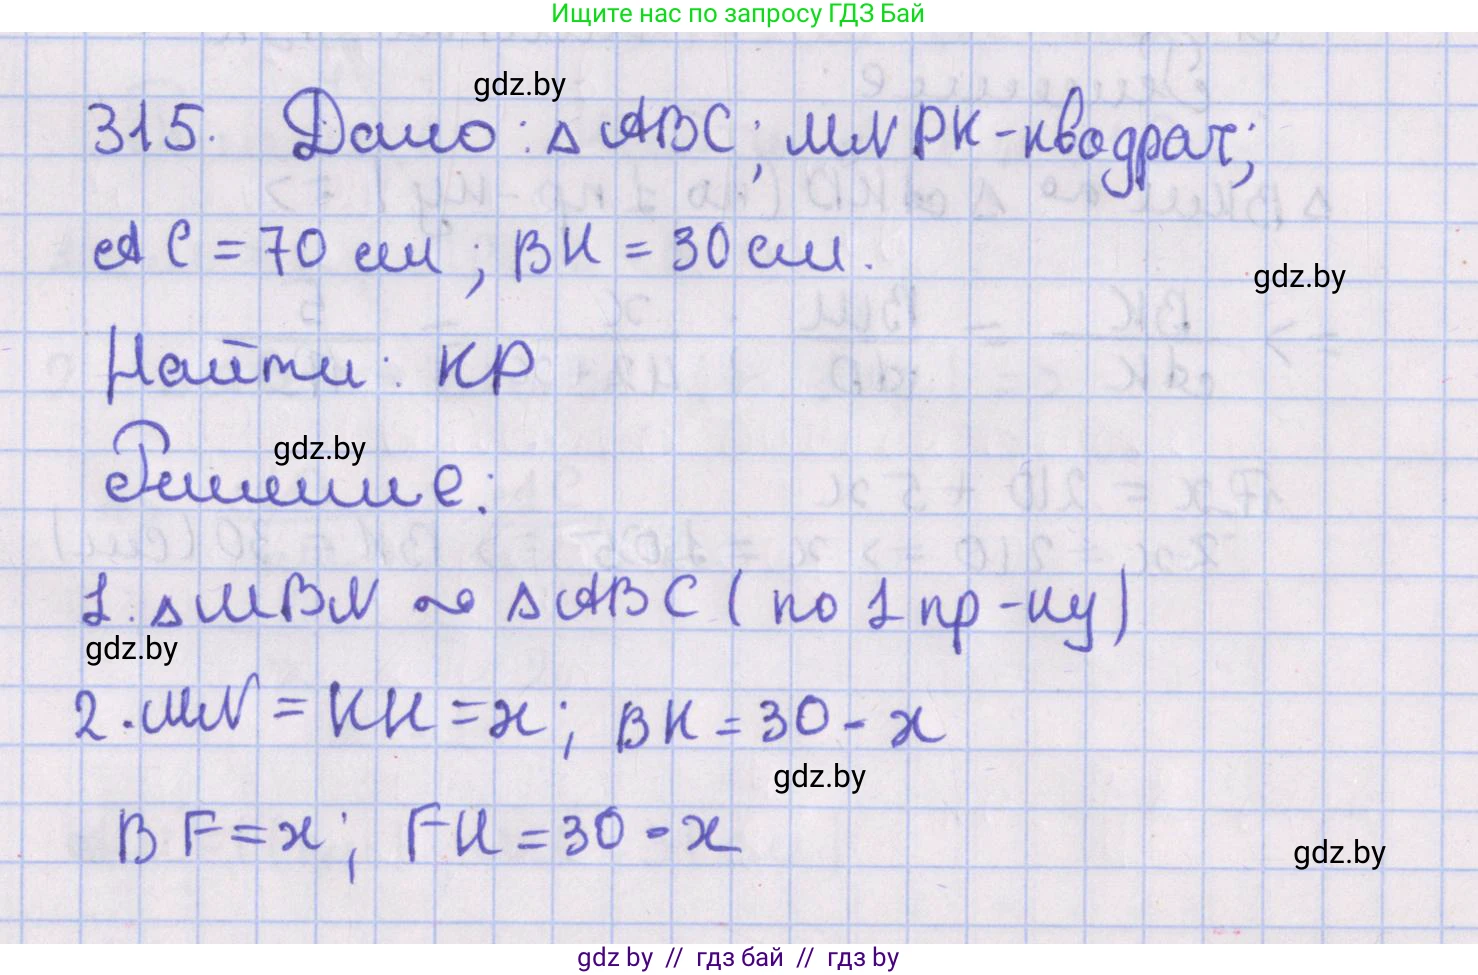 Ищите нас по запросу ГДЗ Бай
gdz.by
315. Дано: △ABC; MNPK-квадрат;
AC = 70 см; BH = 30 см.
gdz.by
Найти: KP
gdz.by
Решение:
1. △MBN ~ △ABC (по 1 пр-ку)
gdz.by
2. MN = KH = x; BK = 30 - x
gdz.by
BF = x; FH = 30 - x
gdz.by
gdz by // гдз бай // гдз by